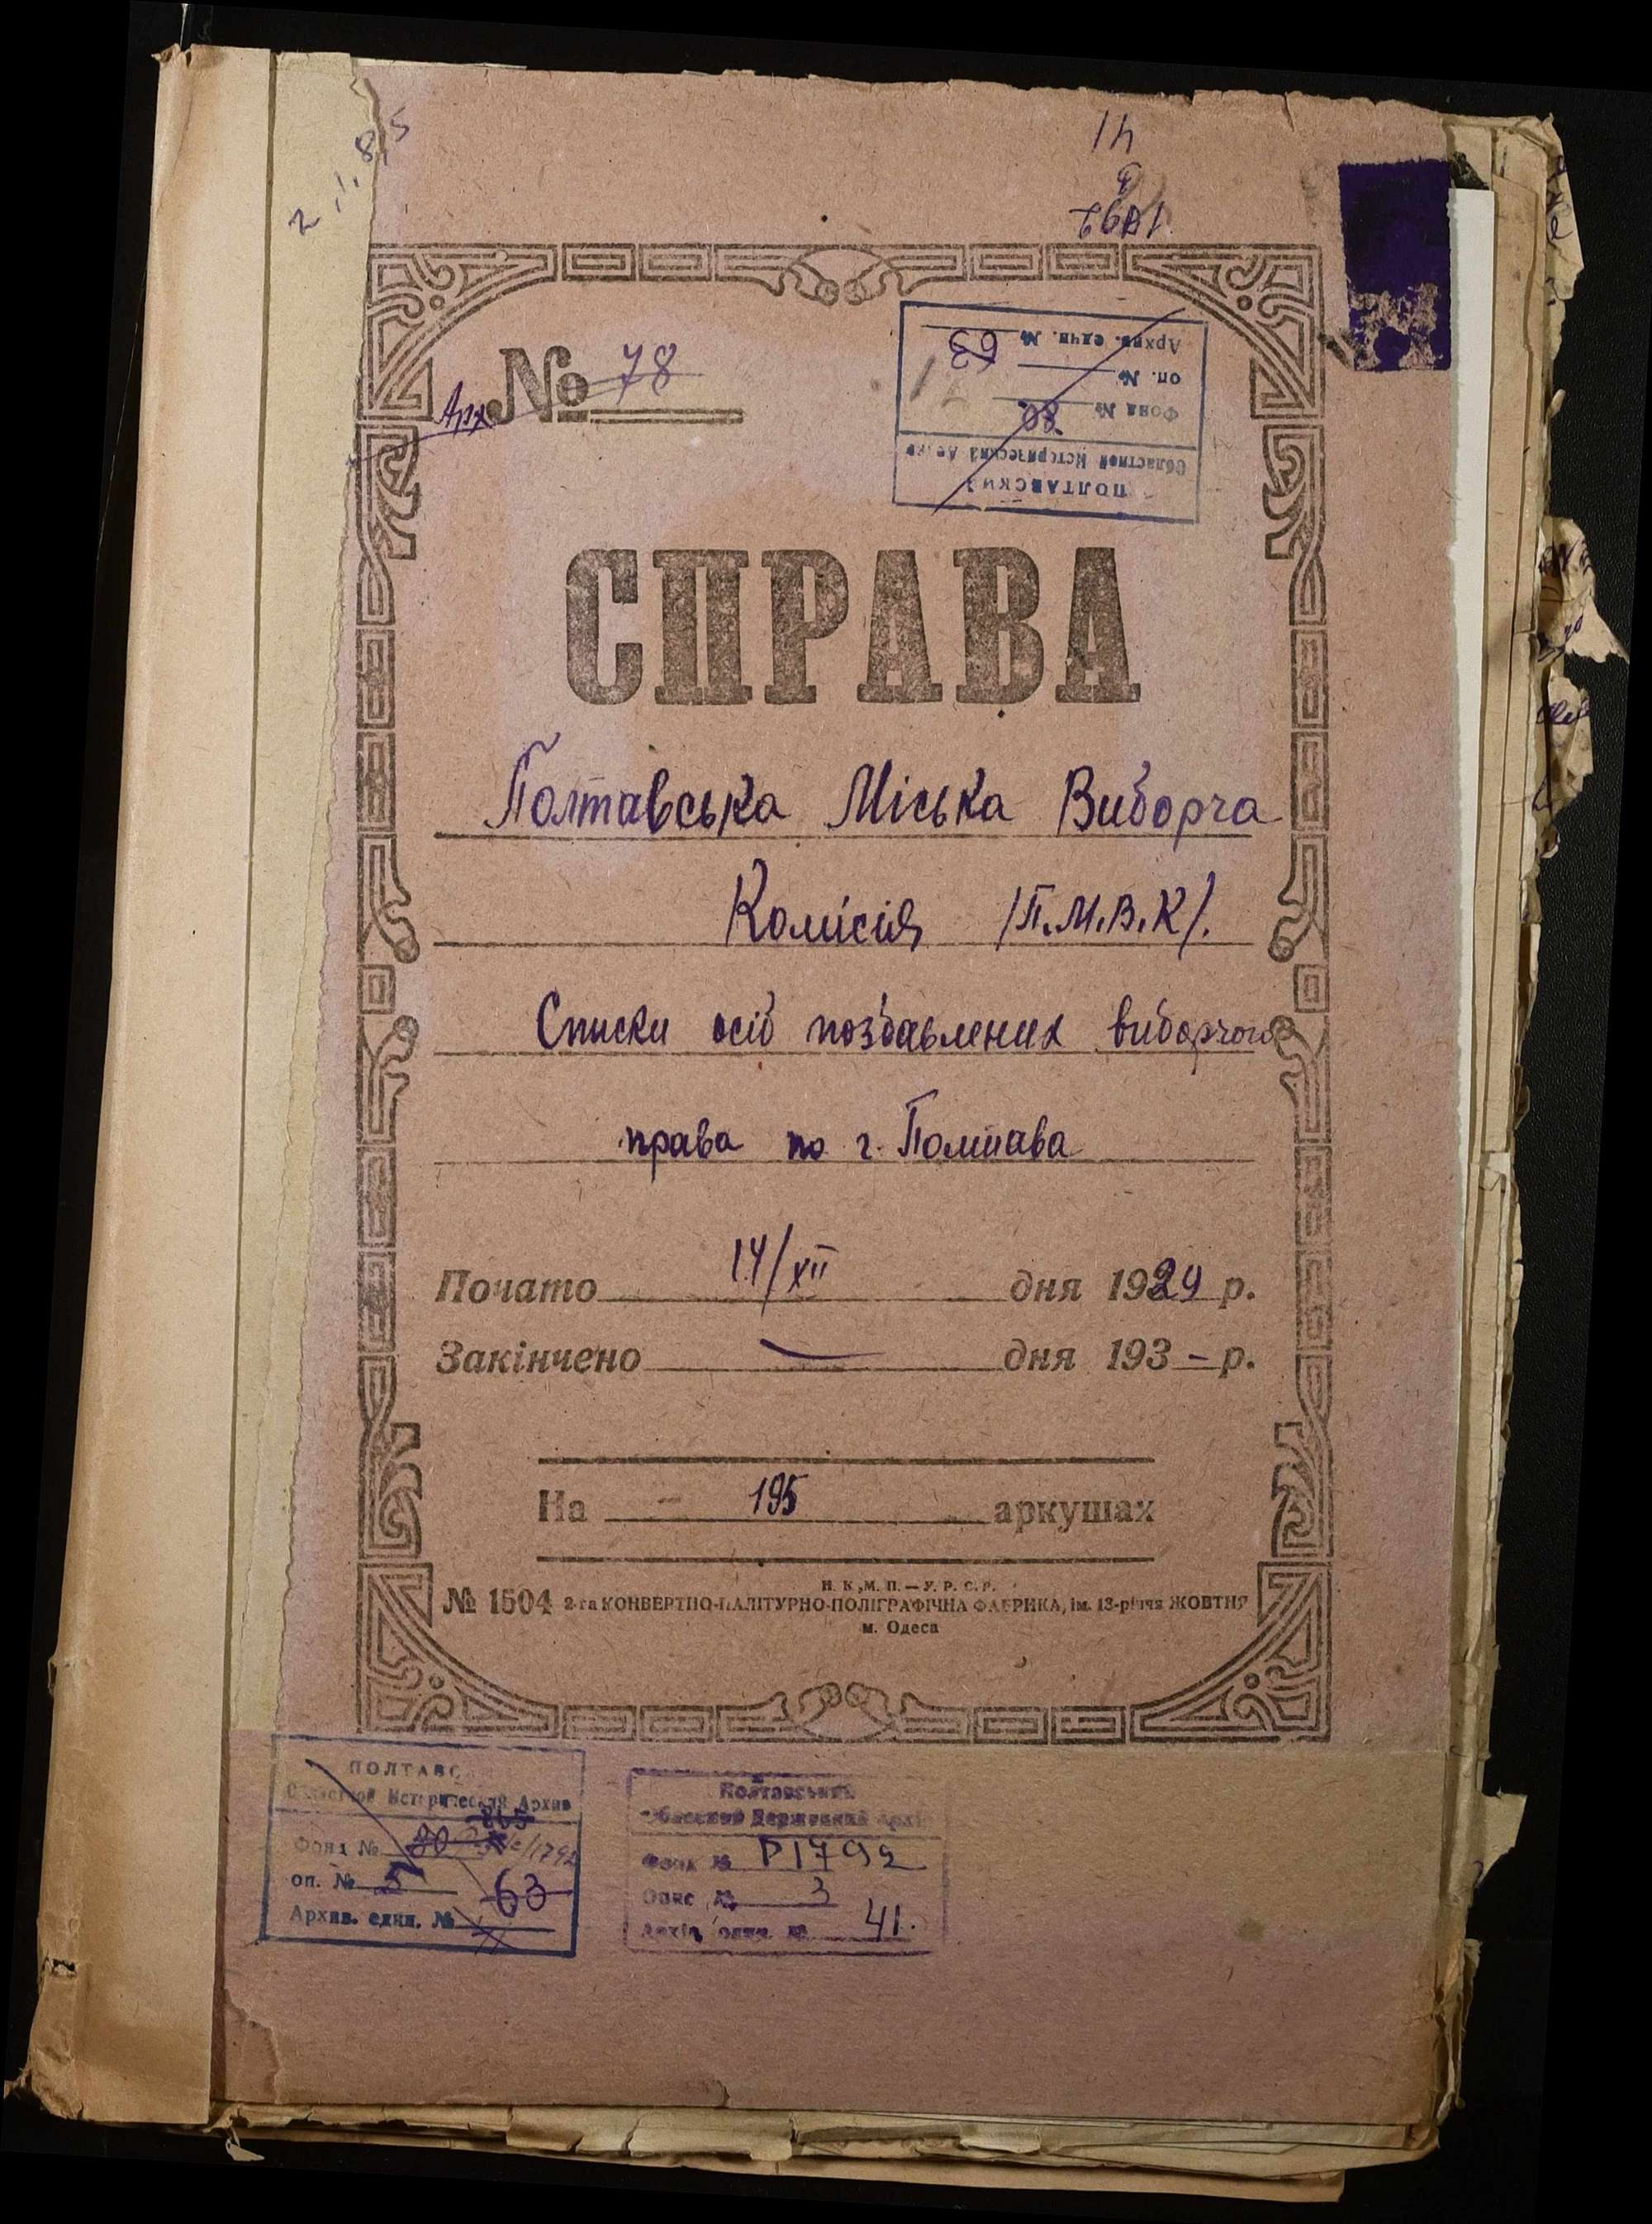 41
3
1792
Арх № 78
ПОЛТАВСКИЙ
Областной Исторический
Фонд № 80
оп. №
Архив. един. № 63
СПРАВА
Полтавська Міська Виборча
Комісія /П.М.В.К/.
Списки осіб позбавлених виборчого
права по г. Полтава
Почато 14/XII дня 1929 р.
Закінчено — дня 193 - р.
На 195 аркушах
Н. К. М. П. — У. Р. С. Р.
№ 1504 2-га КОНВЕРТНО-ПАЛІТУРНО-ПОЛІГРАФІЧНА ФАБРИКА, ім. 13-річчя ЖОВТНЯ
м. Одеса
ПОЛТАВС
Областной Исторический Архив
Фонд № 80
оп. № 5 63
Архив. един. №
Полтавський
Обласний Державний Архів
Фонд № Р1792
Опис № 3
Архів. один. № 41.